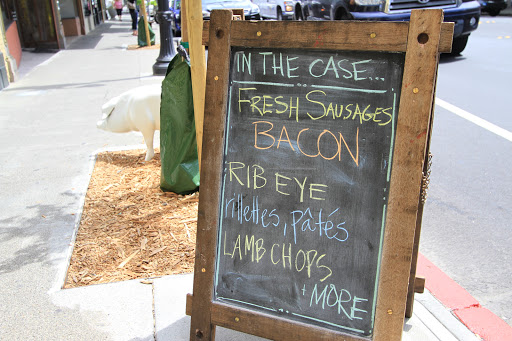 IN THE CASE...
FRESH SAUSAGES
BACON
RIB EYE
rillettes, pâtés
LAMB CHOPS
+ MORE